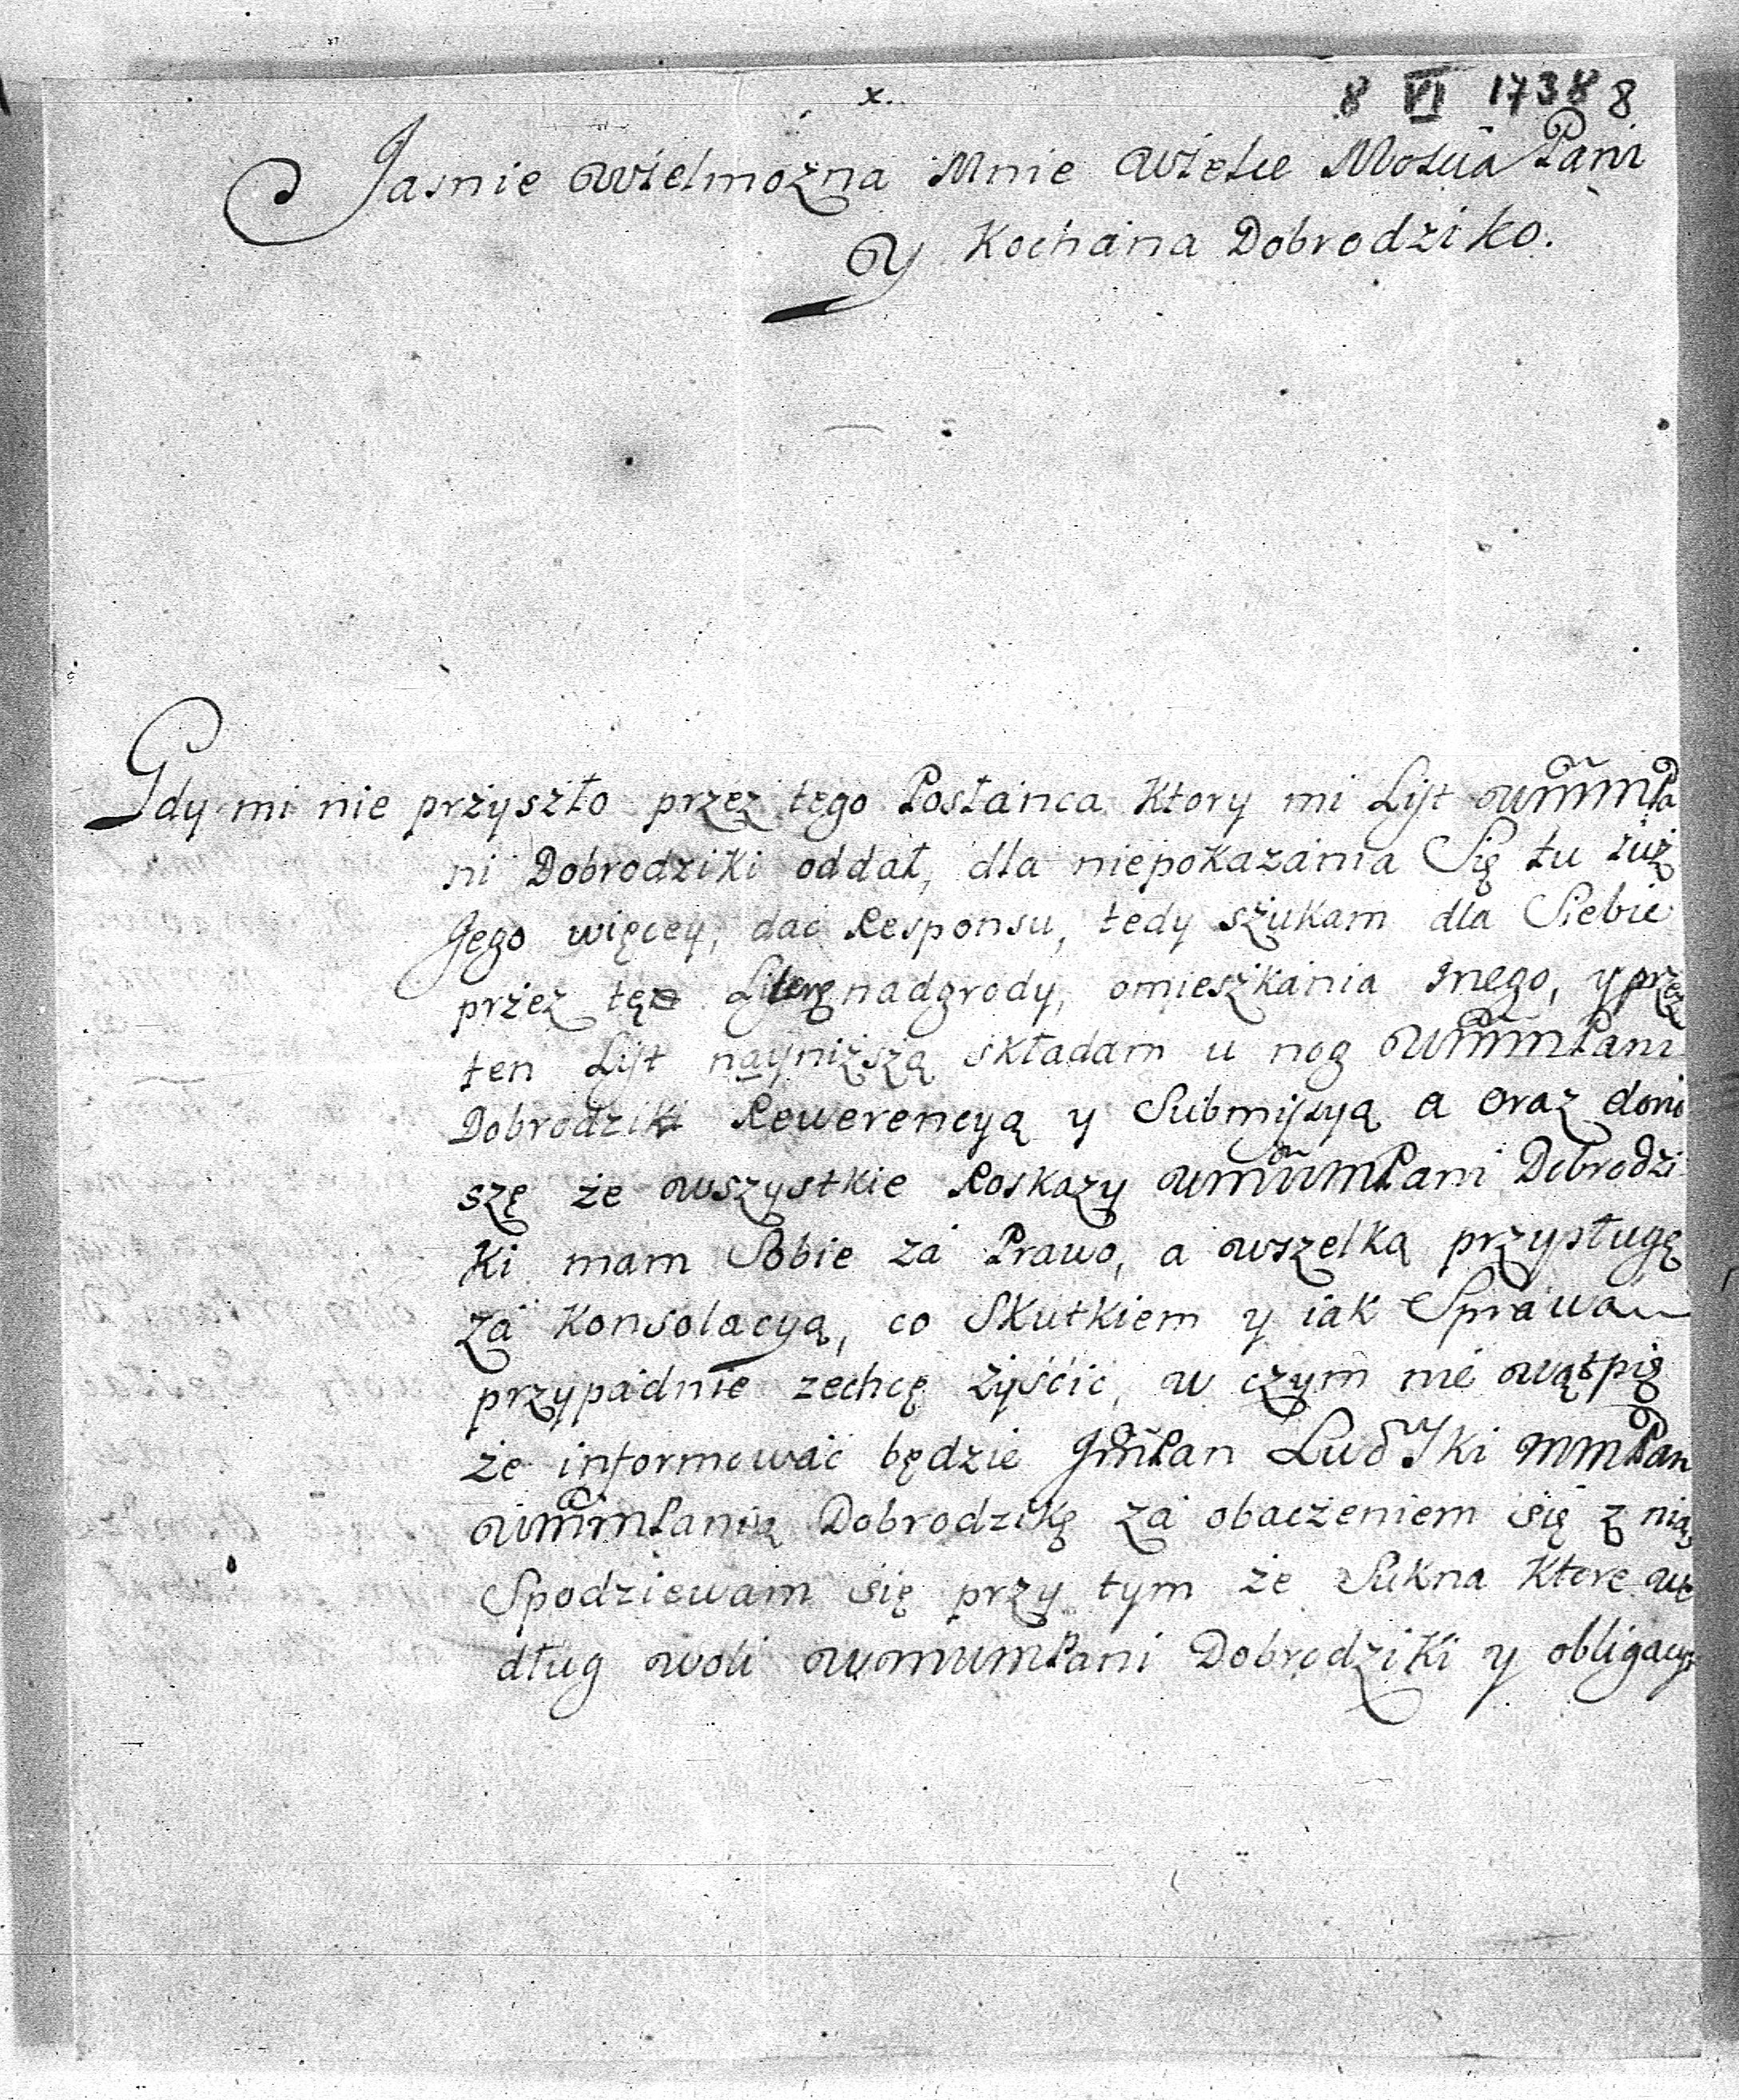 x.
8 VI 1738 8
Jasnie Wielmozna Mnie Wielce Mosцia Pani
y Kochana Dobrodziko.
Gdy mi nie przyszło przez tego Posłanca Ktory mi List WMMMPa
ni Dobrodziki oddał, dla niepokazania Się tu iuż
Jego więcey, dac Responsu, tedy szukam dla Siebie
przez tę Literę nadgrody, omieszkania mego, y przez
ten List nayniższą składam u nog WMMMPani
Dobrodziki Rewerencyą y Submissyą a oraz doni
szę że wszystkie Roskazy WMMMPani Dobrodzi
Ki mam Sobie za Prawo, a wszelką przysługę
za Konsolacyą, co Skutkiem y iak Sprawa
przypadnie zechcę ziścic, w czym nie wątpię
że informować będzie JmPan Ludzki MMPan
WMMMPanią Dobrodzikę za obaczeniem się z nią,
Spodziewam się przy tym że Sukna Ktore we
dług woli WMMMPani Dobrodziki y obligacyi